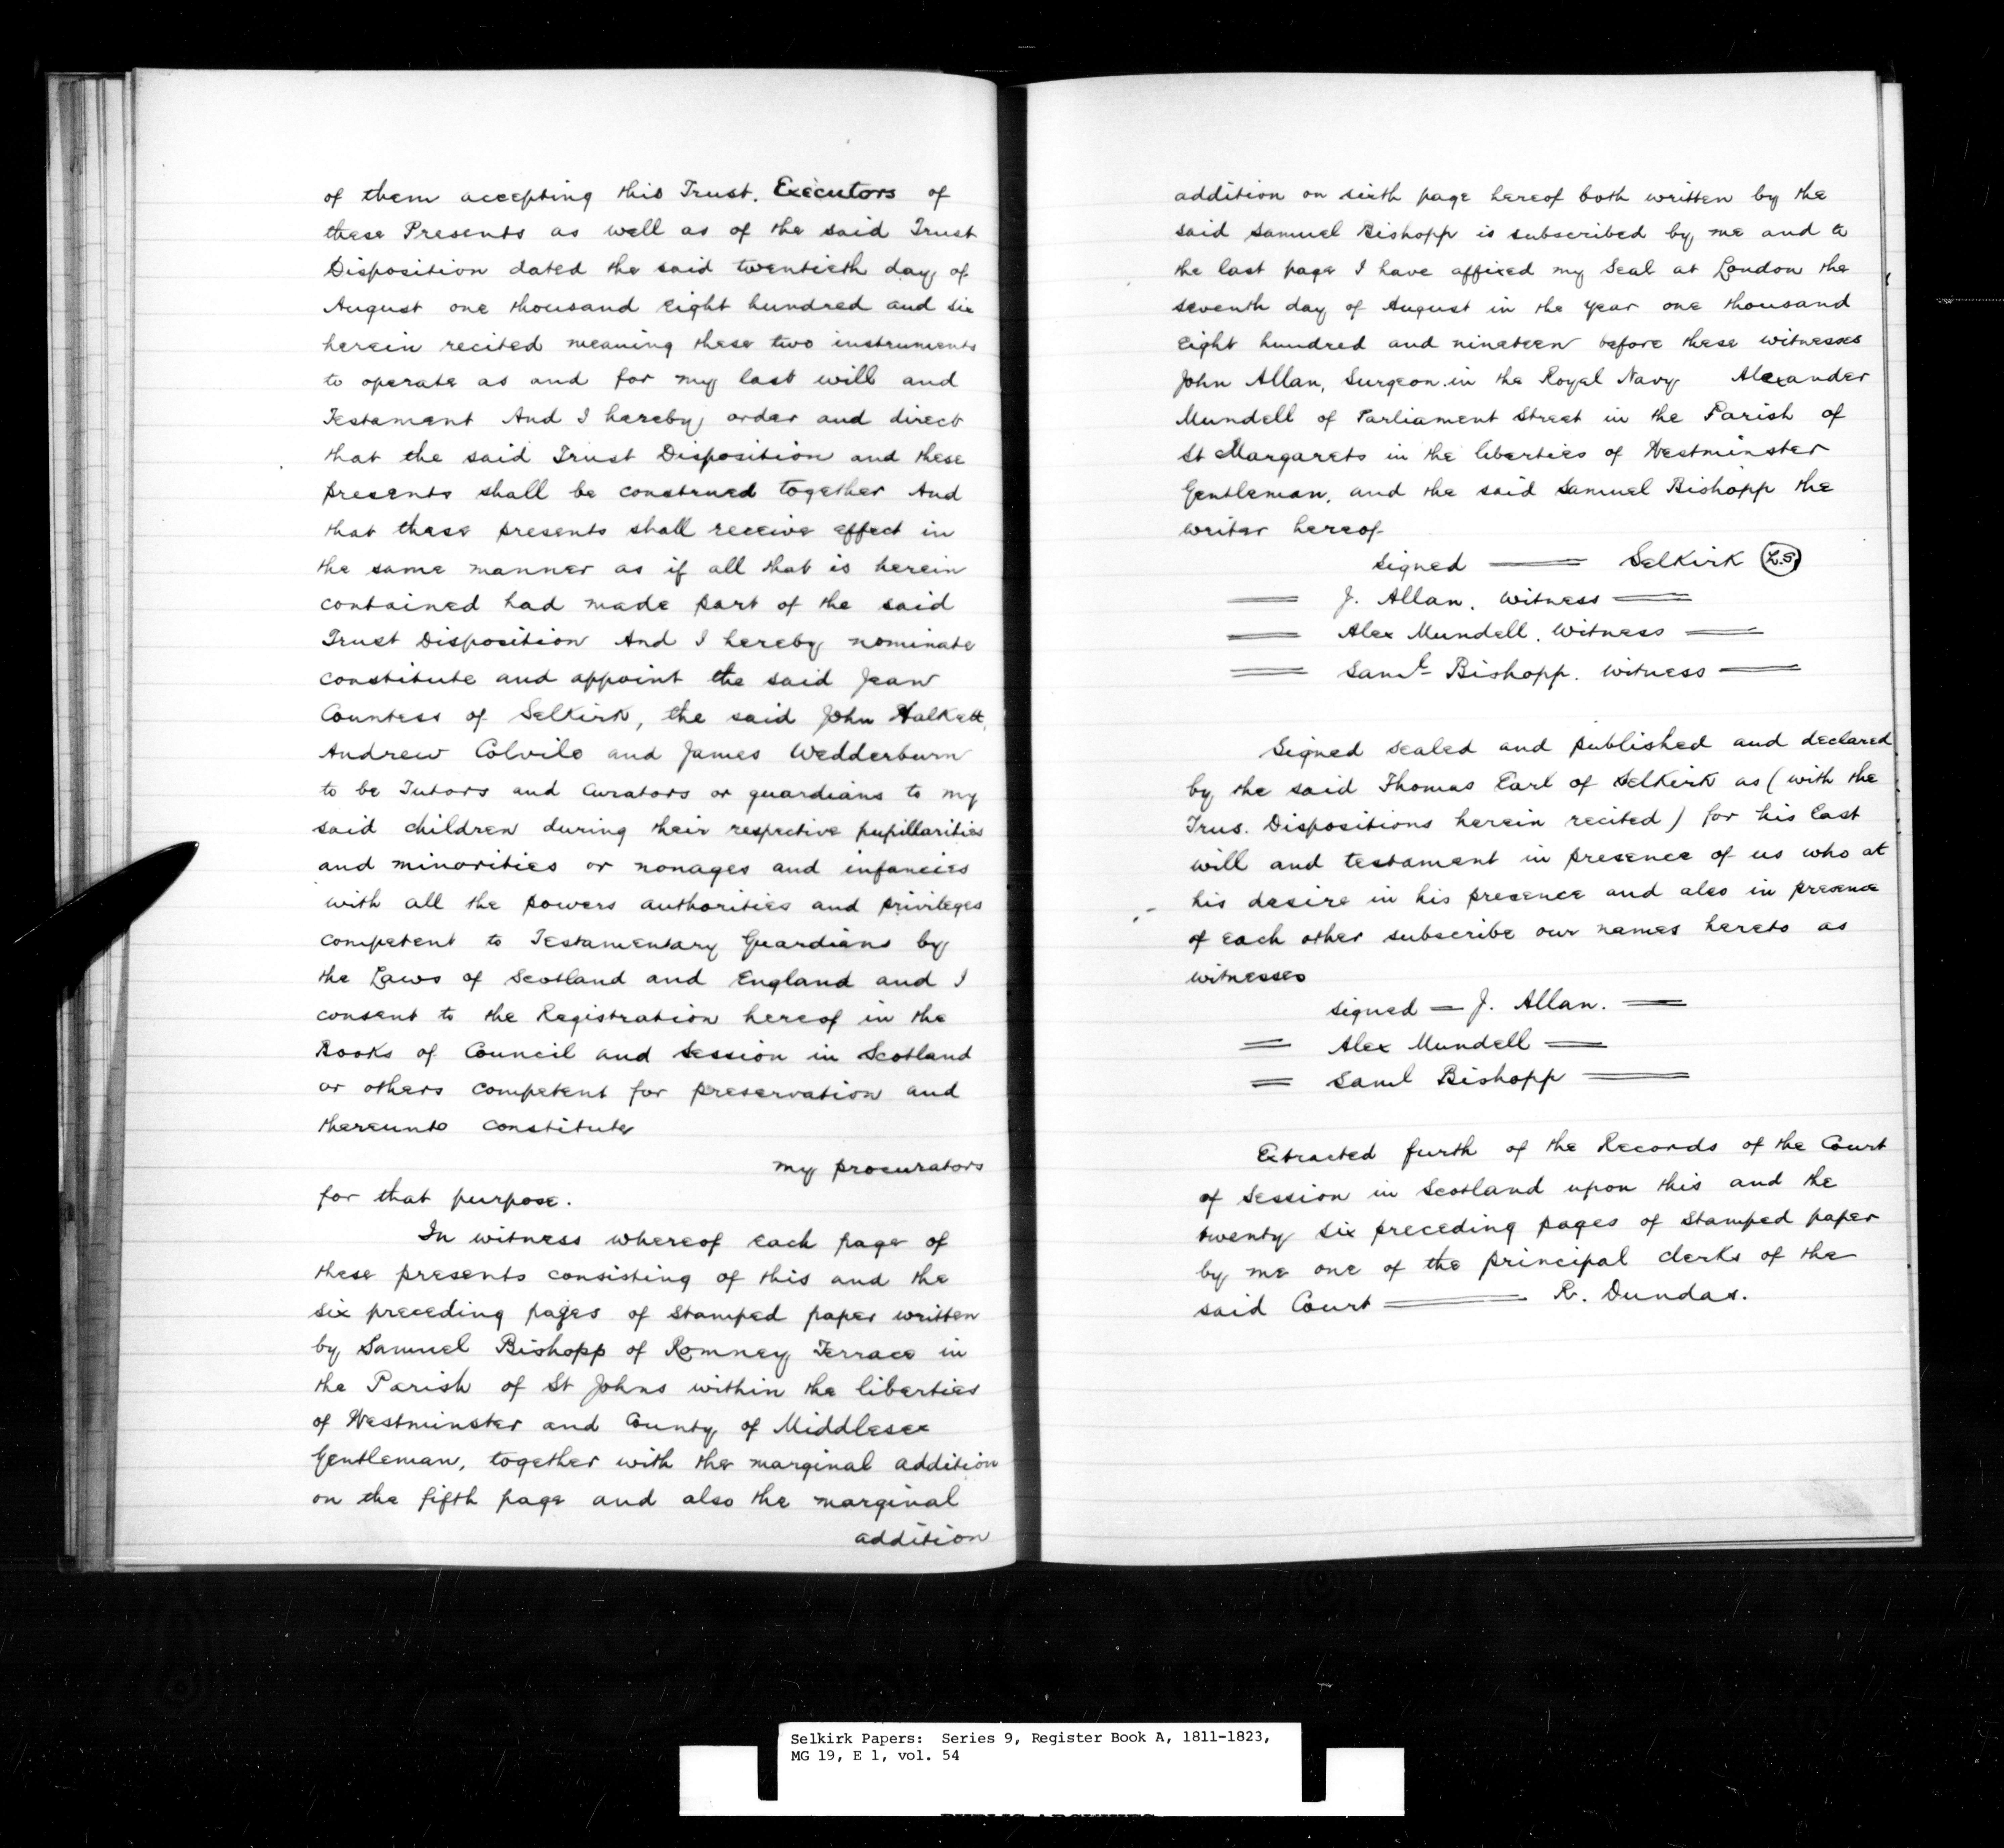 of them accepting this Trust. Executors of
these Presents as well as of the said Trust
Disposition dated the said twentieth day of
August one thousand Eight hundred and six
herein recited meaning these two instruments
to operate as and for my last will and
Testament And I hereby order and direct
that the said Trust Disposition and these
presents shall be construed together And
that these presents shall receive effect in
the same manner as if all that is herein
contained had made part of the said
Trust Disposition And I hereby nominate
constitute and appoint the said Jean
Countess of Selkirk, the said John Halkett,
Andrew Colvile and James Wedderburn
to be Tutors and Curators or guardians to my
said children during their respective pupillarities
and minorities or nonages and infancies
with all the powers authorities and privileges
competent to Testamentary Guardians by
the Laws of Scotland and England and I
consent to the Registration hereof in the
Books of Council and Session in Scotland
or others competent for preservation and
thereunto constitute
my procurators
for that purpose.
In witness whereof each page of
these presents consisting of this and the
six preceding pages of stamped paper written
by Samuel Bishopp of Romney Terrace in
the Parish of St Johns within the liberties
of Westminster and County of Middlesex
Gentleman, together with the marginal addition
on the fifth page and also the marginal
addition
addition on sixth page hereof both written by the
said Samuel Bishopp is subscribed by me and to
the last page I have affixed my Seal at London the
seventh day of August in the year one thousand
Eight hundred and nineteen before these witnesses
John Allan, Surgeon in the Royal Navy Alexander
Mundell of Parliament Street in the Parish of
St Margarets in the liberties of Westminster
Gentleman, and the said Samuel Bishopp the
writer hereof
signed — Selkirk (L.S)
— J. Allan. witness —
— Alex Mundell. witness —
— Saml Bishopp. witness —
Signed sealed and published and declared
by the said Thomas Earl of Selkirk as (with the
Trus. Dispositions herein recited) for his last
will and testament in presence of us who at
his desire in his presence and also in presence
of each other subscribe our names hereto as
witnesses
signed — J. Allan. —
— Alex Mundell —
— Saml Bishopp —
Extracted furth of the Records of the Court
of Session in Scotland upon this and the
twenty six preceding pages of stamped paper
by me one of the principal clerks of the
said Court — R. Dundas.
Selkirk Papers: Series 9, Register Book A, 1811-1823,
MG 19, E 1, vol. 54